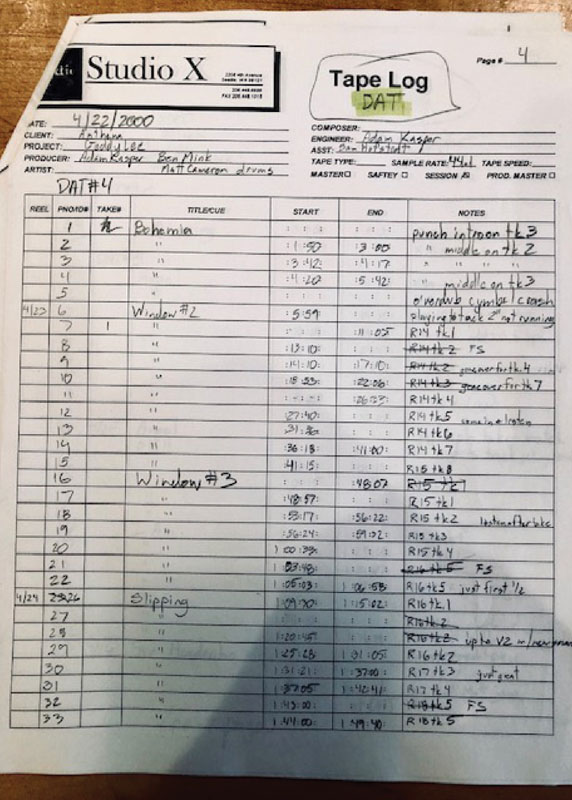 Page # 4
Studio X
2206 4th Avenue
Tape Log
DAT
DATE: 4/22/2000
CLIENT: Anthem
PROJECT: Geddy Lee
PRODUCER: Adam Kasper Ben Mink
ARTIST: Matt Cameron drums
COMPOSER:
ENGINEER: Adam Kasper
ASST: Sam Hofstedt
TAPE TYPE: SAMPLE RATE: 44.1 TAPE SPEED:
MASTER SAFTEY SESSION PROD. MASTER
DAT #4
REEL PNO/ID# TAKE# TITLE/CUE START END NOTES
1 Bohemia : : : : : : punch intro on tk 3
2 " :1:50: :3:00: " middle on tk 2
3 " :3:42: :4:17: " " " "
4 " :4:20: :5:42: " middle on tk 3
5 " : : : : : : overdub cymbal crash
4/23 6 Window #2 :5:59: : : : playing to track 2" not running
7 1 " : : : :11:05: R14 tk1
8 " :13:10: : : : R14 tk 2 FS
9 " :14:10: :17:10: R14 tk 2 gone over for tk. 4
10 " :22:06: R14 tk 3 gone over for tk 7
11 " : : : :26:23: R14 tk 4
12 " :27:40: : : : R14 tk5
13 " :31:36: : : : R14 tk6
14 " :36:18: :41:00: R14 tk7
15 " :41:15: : : : R15 tk 8
16 Window #3 : : : :48:07 R15 tk 1
17 " :48:57: : : : R15 tk1
18 " :53:17: :56:22: R15 tk2
19 " :56:24: :59:22: R15 tk3
20 " 1:00:33: : : : R15 tk 4
21 " 1:03:48: : : : R16 tk 5 FS
22 " 1:05:03: 1:06:58 R16 tk5 just first 1/2
4/24 26 Slipping 1:09:30: 1:15:02: R16 tk.1
27 " : : : : : : R16 tk.2
28 " 1:20:45: : : : R16 tk2 up to V2
29 " 1:25:23: 1:31:05: R16 tk2
30 " 1:31:21: 1:37:00: R17 tk3 just great
31 " 1:37:05 1:42:41: R17 tk4
32 " 1:43:00: : : : R18 tk5 FS
33 " 1:44:00: 1:49:40: R18 tk 5